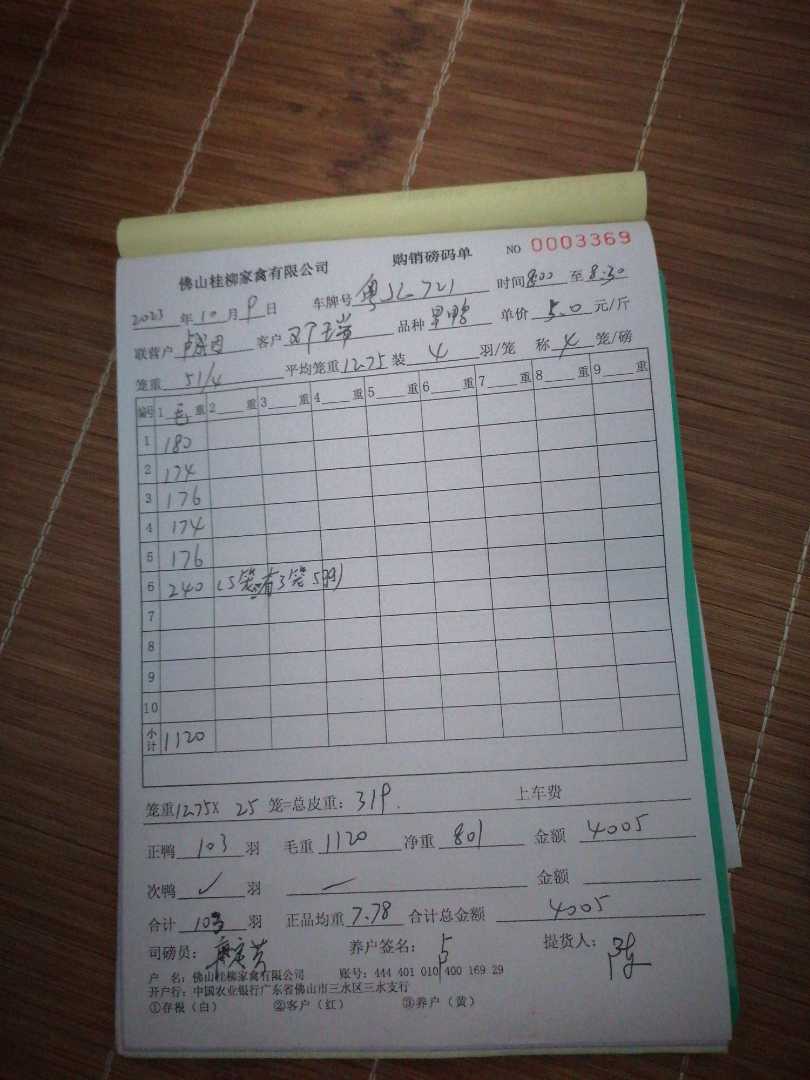 佛山桂柳家禽有限公司 购销磅码单 NO 0003369
2023 年 10 月 9 日 车牌号 时间 8:00 至 8:30
联营户 客户 品种 单价 5.0 元/斤
笼重 51/4 平均笼重 12.75 装 4 羽/笼 称 4 笼/磅
编号 1 毛 重 2 重 3 重 4 重 5 重 6 重 7 重 8 重 9 重
1 180
2 174
3 176
4 174
5 176
6 240 (5笼有3笼5羽)
7
8
9
10
小计 1120
笼重 12.75 X 25 笼=总皮重: 319. 上车费
正鸭 103 羽 毛重 1120 净重 801 金额 4005
次鸭 羽 金额
合计 103 羽 正品均重 7.78 合计总金额 4005
司磅员: 养户签名: 提货人:
户 名: 佛山桂柳家禽有限公司 账号: 444 401 010 400 169 29
开户行: 中国农业银行广东省佛山市三水区三水支行
①存根 (白) ②客户 (红) ③养户 (黄)